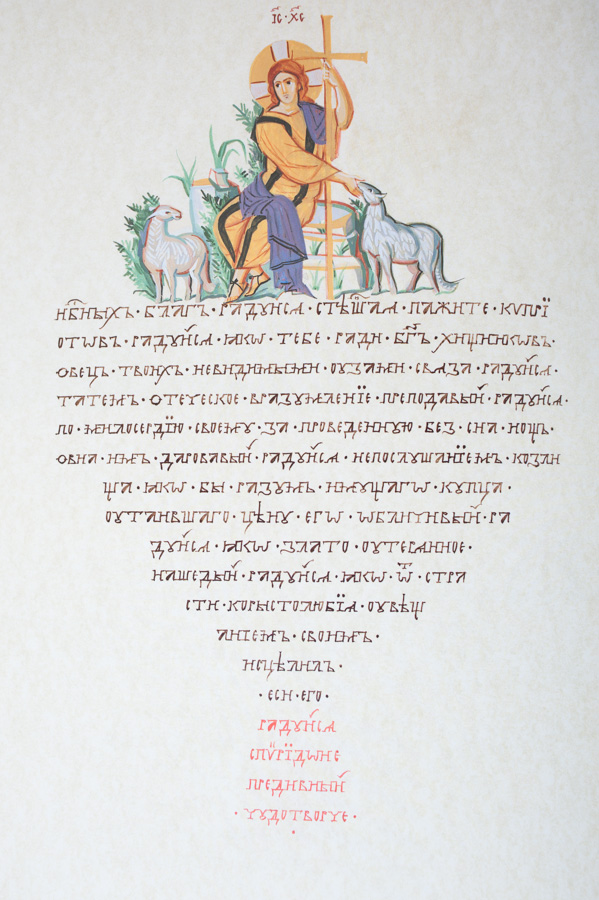 І҃С · Х҃С
нбⷭ҇ныхъ · благъ · радуйсѧ · ст҃ѣйшаѧ · пажите · кѵпрї
отѡвъ · радуйсѧ · ꙗкѡ · тебе · ради · бг҃ъ · хищникѡвъ ·
овецъ · твоихъ · невидимыми · оузами · свѧза · радуйсѧ ·
татемъ · отеческое · вразумленїе · преподавый · радуйсѧ ·
по · милосердїю · своему · за · проведенную · без · сна · нощь ·
овна · имъ · даровавый · радуйсѧ · непослушанїемъ · козли
ща · ꙗкѡ · бы · разумъ · имущагѡ · купца ·
оутаившаго · цѣну · егѡ · ѡбличивый · ра
дуйсѧ · ꙗкѡ · злато · оутеранное ·
нашедый · радуйсѧ · ꙗкѡ · ѿ · стра
сти · корыстолюбїа · оувѣщ
анїемъ · своимъ ·
исцѣлилъ ·
· еси · его ·
радуйсѧ
спѷрїдѡне
предивный
· чудотворче ·